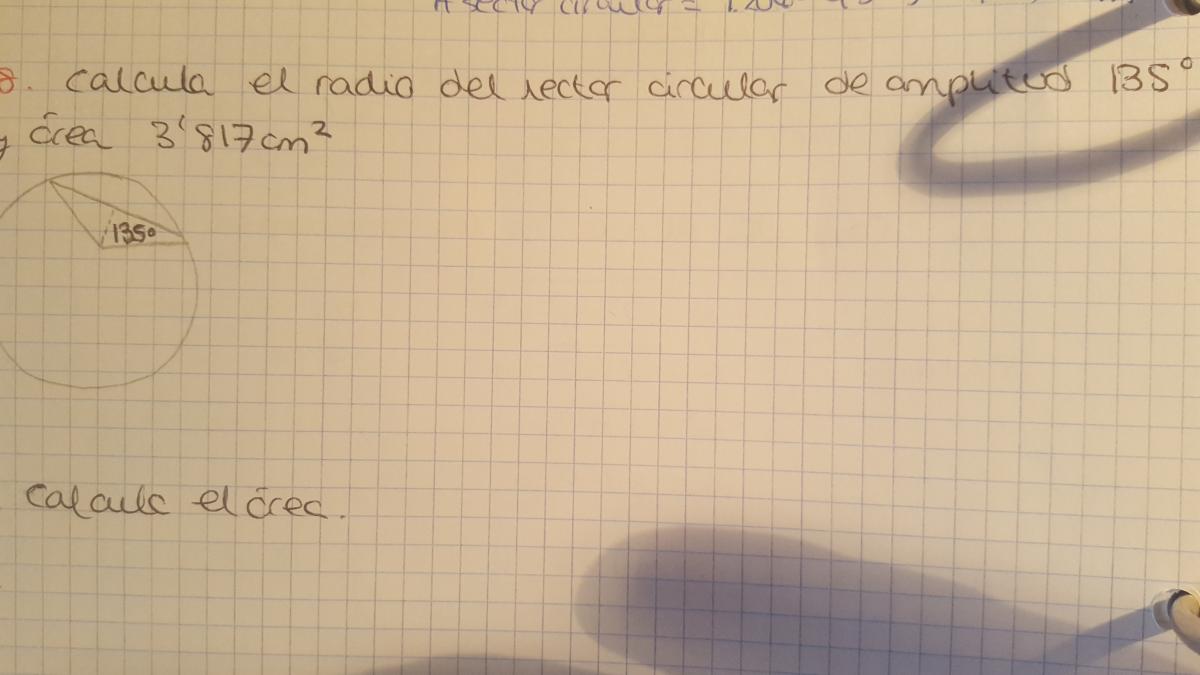 A sector circular =
8. Calcula el radio del sector circular de amplitud 135°
y área 3'817cm²
135°
Calcula el área.